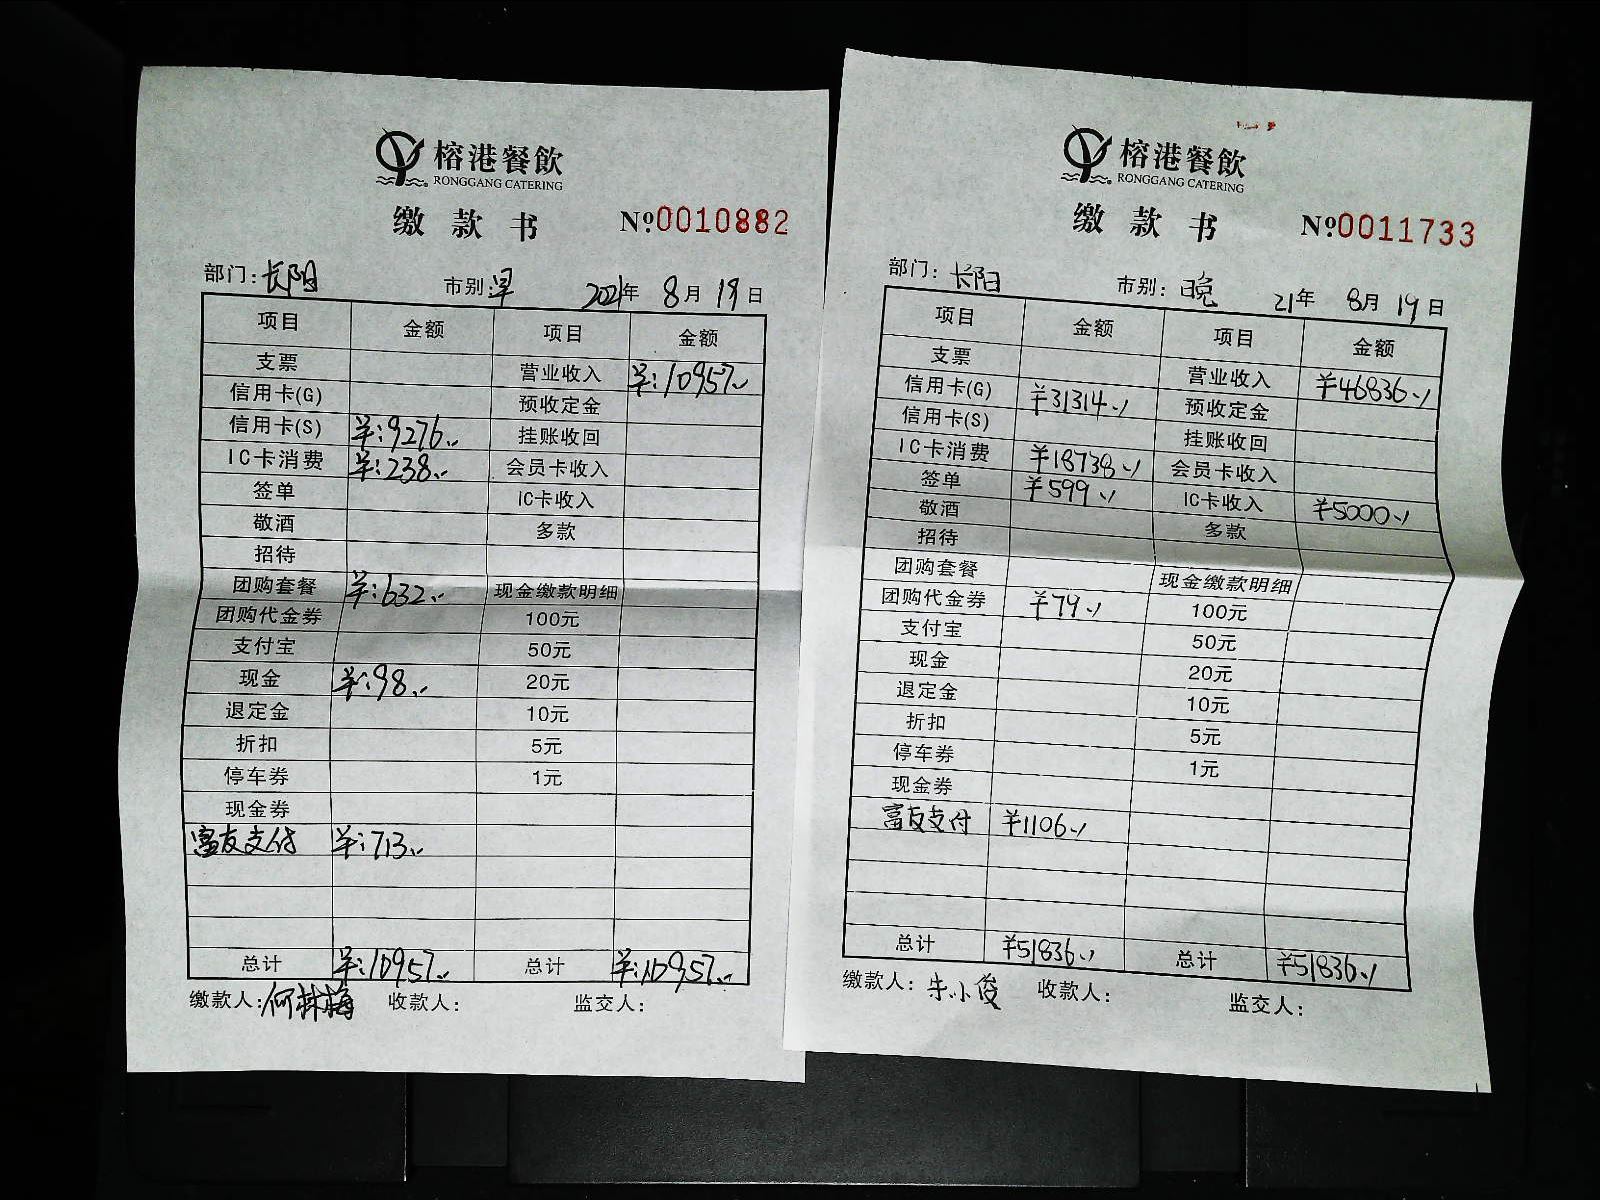 榕港餐飲
RONGGANG CATERING
缴款书 №0010882
部门:长阳 市别:早 2021年 8月 19日
项目 金额 项目 金额
支票 营业收入 ¥:10957.
信用卡(G) 预收定金
信用卡(S) ¥:9276. 挂账收回
IC卡消费 ¥:238. 会员卡收入
签单 IC卡收入
敬酒 多款
招待
团购套餐 ¥:632. 现金缴款明细
团购代金券 100元
支付宝 50元
现金 ¥:98. 20元
退定金 10元
折扣 5元
停车券 1元
现金券
富友支付 ¥:713.
总计 ¥:10957. 总计 ¥:10957.
缴款人:何林梅 收款人: 监交人:
榕港餐飲
RONGGANG CATERING
缴款书 №0011733
部门:长阳 市别:晚 21年 8月 19日
项目 金额 项目 金额
支票 营业收入 ¥46836.
信用卡(G) ¥31314. 预收定金
信用卡(S) 挂账收回
IC卡消费 ¥18738. 会员卡收入
签单 ¥599. IC卡收入 ¥5000.
敬酒 多款
招待
团购套餐 现金缴款明细
团购代金券 ¥79. 100元
支付宝 50元
现金 20元
退定金 10元
折扣 5元
停车券 1元
现金券
富友支付 ¥1106.
总计 ¥51836. 总计 ¥51836.
缴款人:朱小俊 收款人: 监交人: